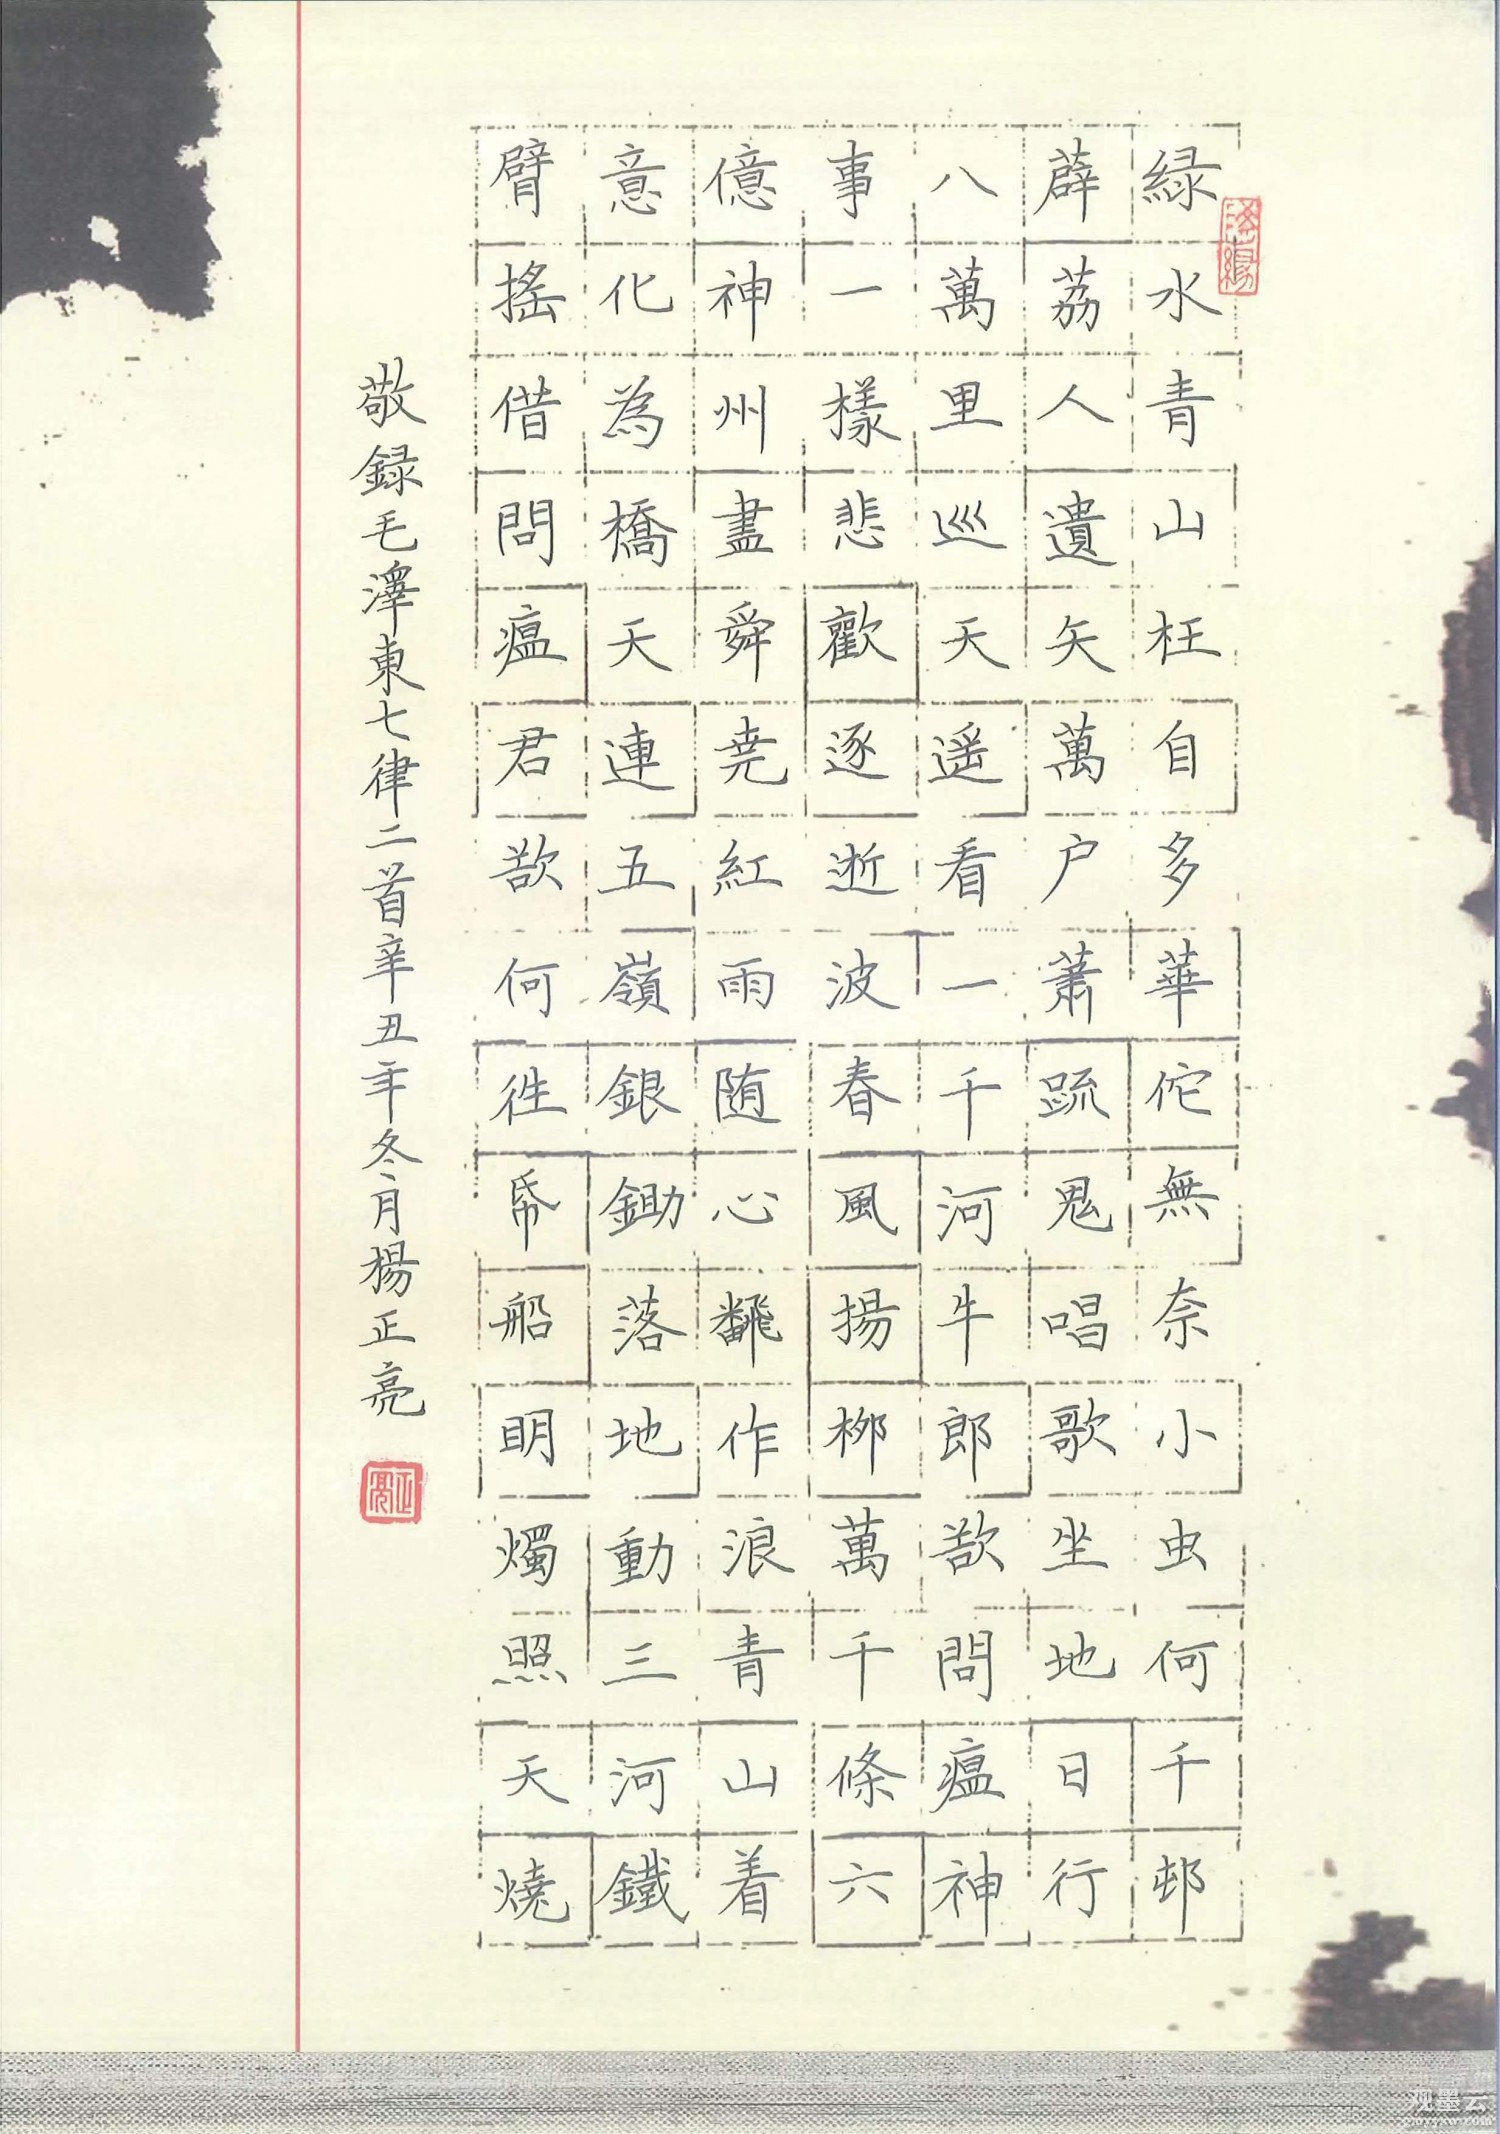 緑水青山枉自多華佗無奈小虫何千邨
薜荔人遺矢萬户蕭䟽鬼唱歌坐地日行
八萬里巡天遥看一千河牛郎欲問瘟神
事一樣悲歡逐逝波春風揚柳萬千條六
億神州盡舜尭紅雨随心飜作浪青山着
意化為橋天連五嶺銀鋤落地動三河鐵
臂搖借問瘟君欲何徃帋船明燭照天燒
敬録毛澤東七律二首辛丑年冬月楊正亮
正亮
观墨云